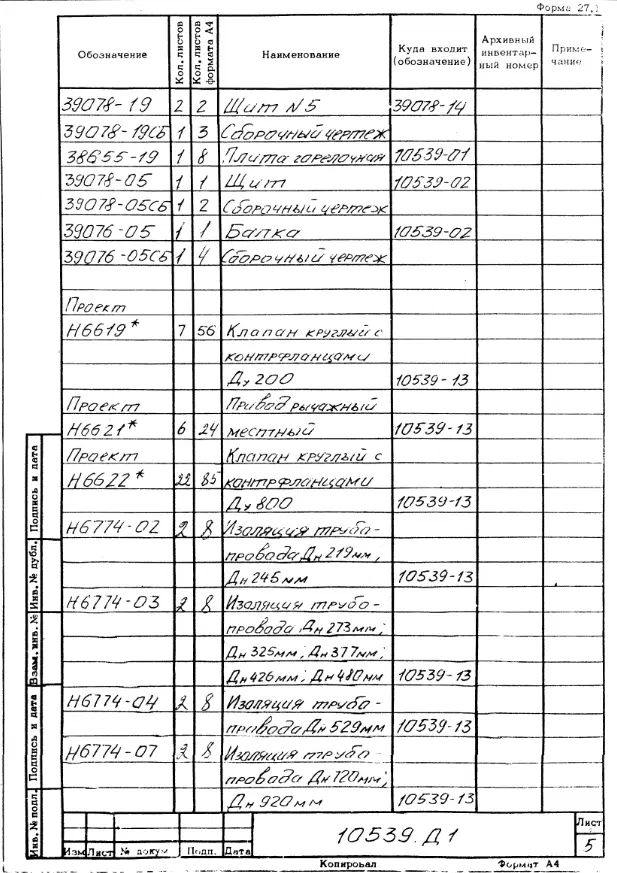 Форма 27.1
Обозначение Кол. листов Кол. листов формата А4 Наименование Куда входит (обозначение) Архивный инвентарный номер Примечание
39078-19 2 2 Щит №5 39078-14
39078-19СБ 1 3 Сборочный чертеж
38655-19 1 8 Плита горелочная 10539-01
39078-05 1 1 Щит 10539-02
39078-05СБ 1 2 Сборочный чертеж
39076-05 1 1 Балка 10539-02
39076-05СБ 1 4 Сборочный чертеж
Проект
Н6619* 7 56 Клапан круглый с
контрфланцами
Ду 200 10539-13
Проект Привод рычажный
Н6621* 6 24 местный 10539-13
Проект Клапан круглый с
Н6622* 22 85 контрфланцами
Ду 800 10539-13
Н6774-02 2 8 Изоляция трубо-
провода Дн 219мм,
Дн 245мм 10539-13
Н6774-03 2 8 Изоляция трубо-
провода Дн 273мм;
Дн 325мм; Дн 377мм;
Дн 426мм; Дн 480мм 10539-13
Н6774-04 2 8 Изоляция трубо-
провода Дн 529мм 10539-13
Н6774-07 2 8 Изоляция трубо-
провода Дн 720мм;
Дн 920мм 10539-13
Инв. № подл. Подпись и дата Взам. инв. № Инв. № дубл. Подпись и дата
10539.Д1
Лист
5
Изм Лист № докум Подп. Дата
Копировал Формат А4